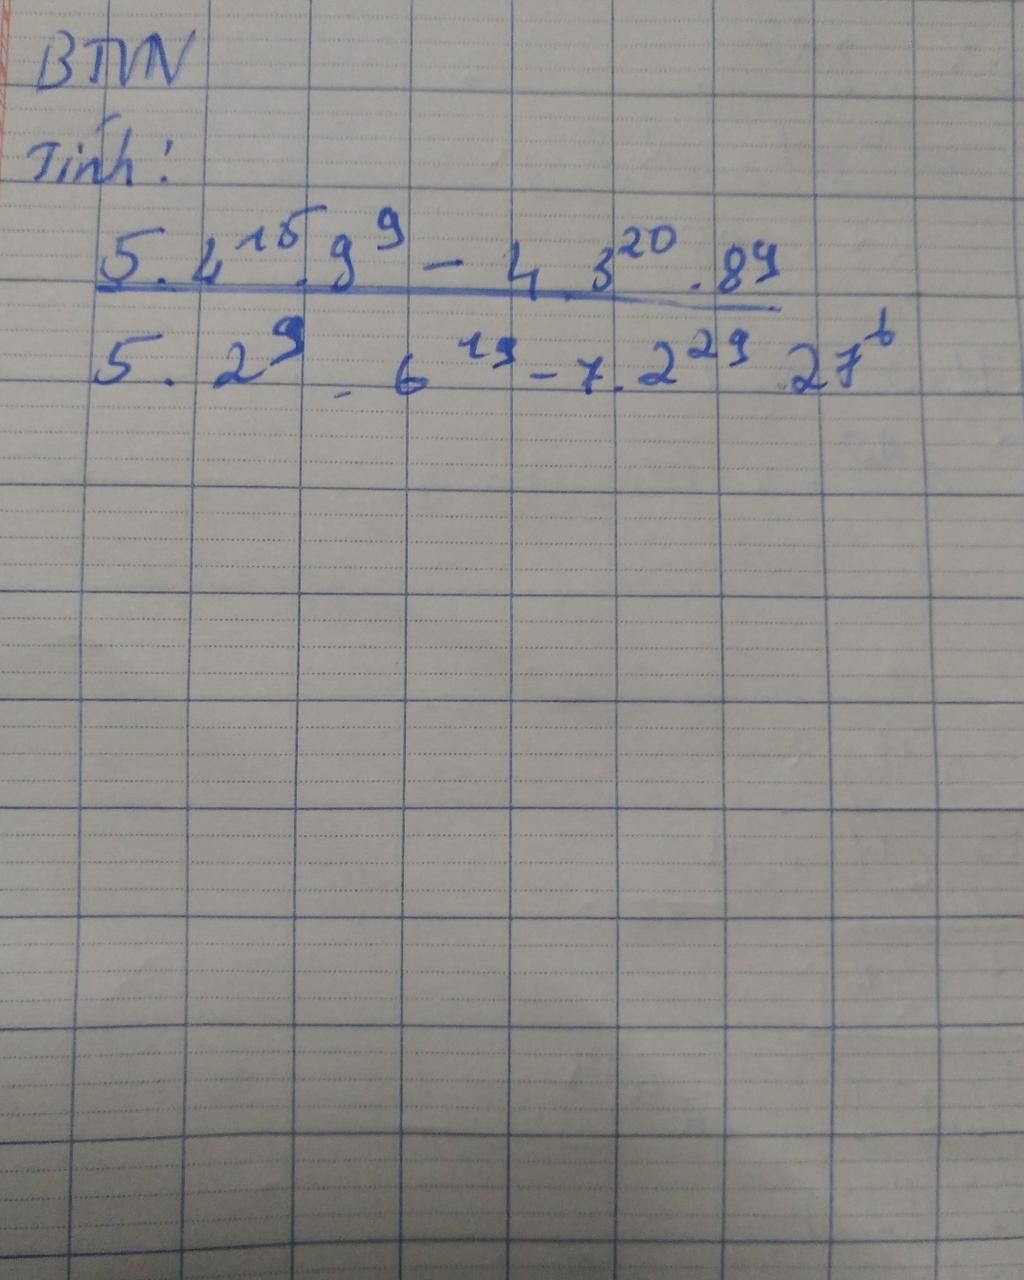 BTVN
Tính:
5.4^15.9^9 - 4.3^20.8^9
5.2^9.6^19 - 7.2^29.27^6